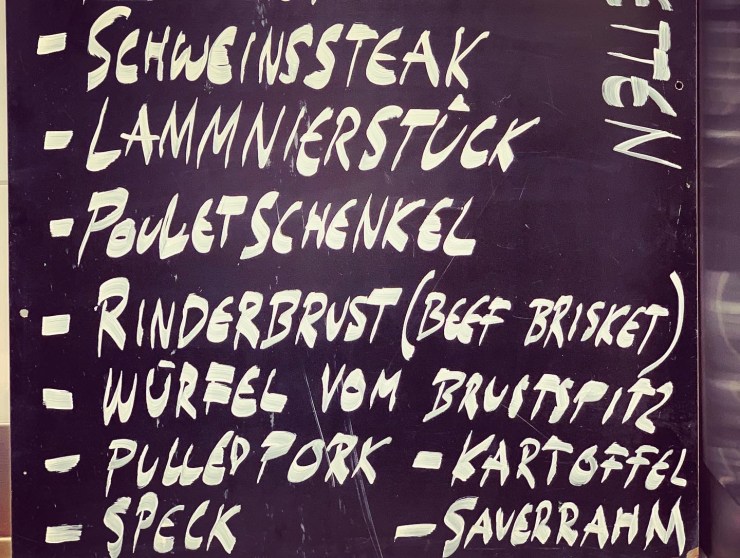 - SCHWEINSSTEAK
- LAMMNIERSTÜCK
- POULETSCHENKEL
- RINDERBRUST (BEEF BRISKET)
- WÜRFEL VOM BRUSTSPITZ
- PULLED PORK - KARTOFFEL
- SPECK - SAUERRAHM